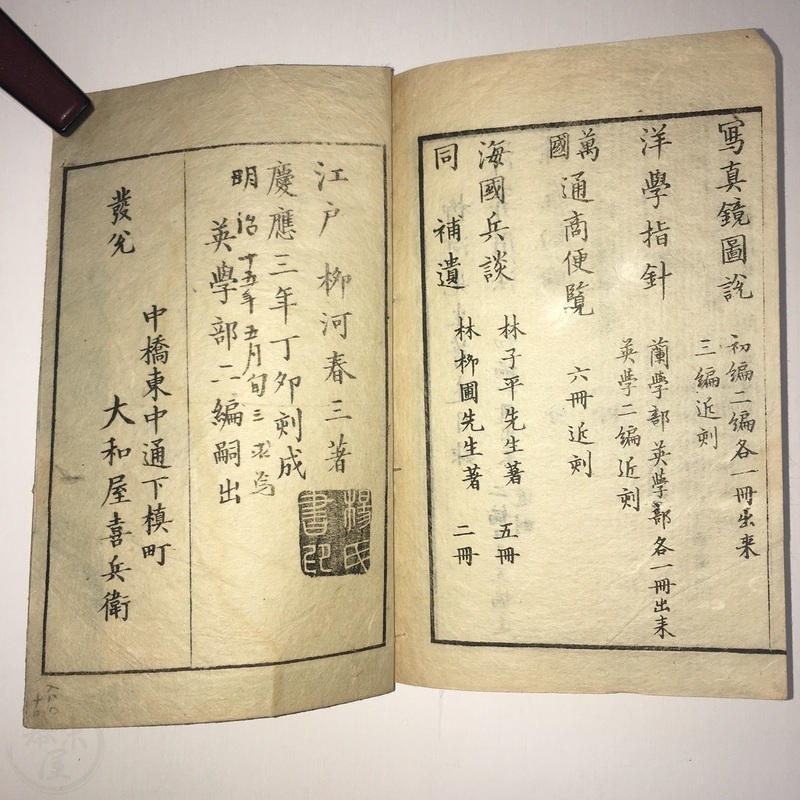 寫真鏡圖説 初編二編各一冊出来
三編近刻
洋學指針 蘭學部英學部各一冊出来
英学二編近刻
萬國通商便覧 六冊近刻
海國兵談 林子平先生著 五冊
同 補遺 林栁圃先生著 二冊
江戸 栁河春三著
慶應三年丁卯刻成
明治十五年五月旬三求
英學部二編嗣出
楊氏書印
發兌
中橋東中通下槙町
大和屋喜兵衛